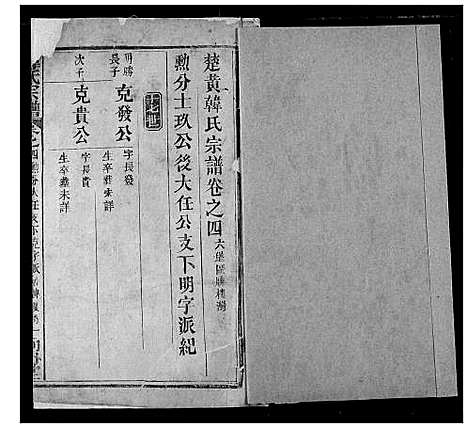 楚黃韓氏宗譜卷之四六堡區牌樓灣
勲分士玖公後大任公支下明字派紀
十七世
明勝
長子
克發公
字長發
生卒葬未詳
次子
克貴公
字長貴
生卒葬未詳
氏宗譜